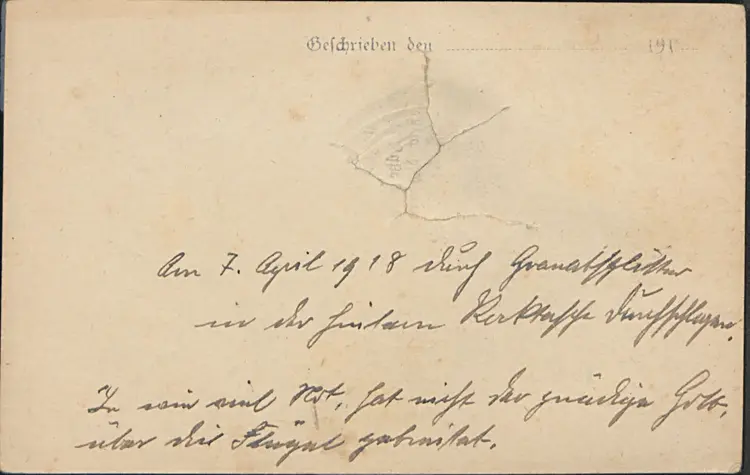 Geschrieben den 191
Am 7. April 1918 durch Granatsplitter
in der hintern Rocktasche durchschlagen.
In wie viel Not, hat nicht der gnädige Gott,
über dir Flügel gebreitet.